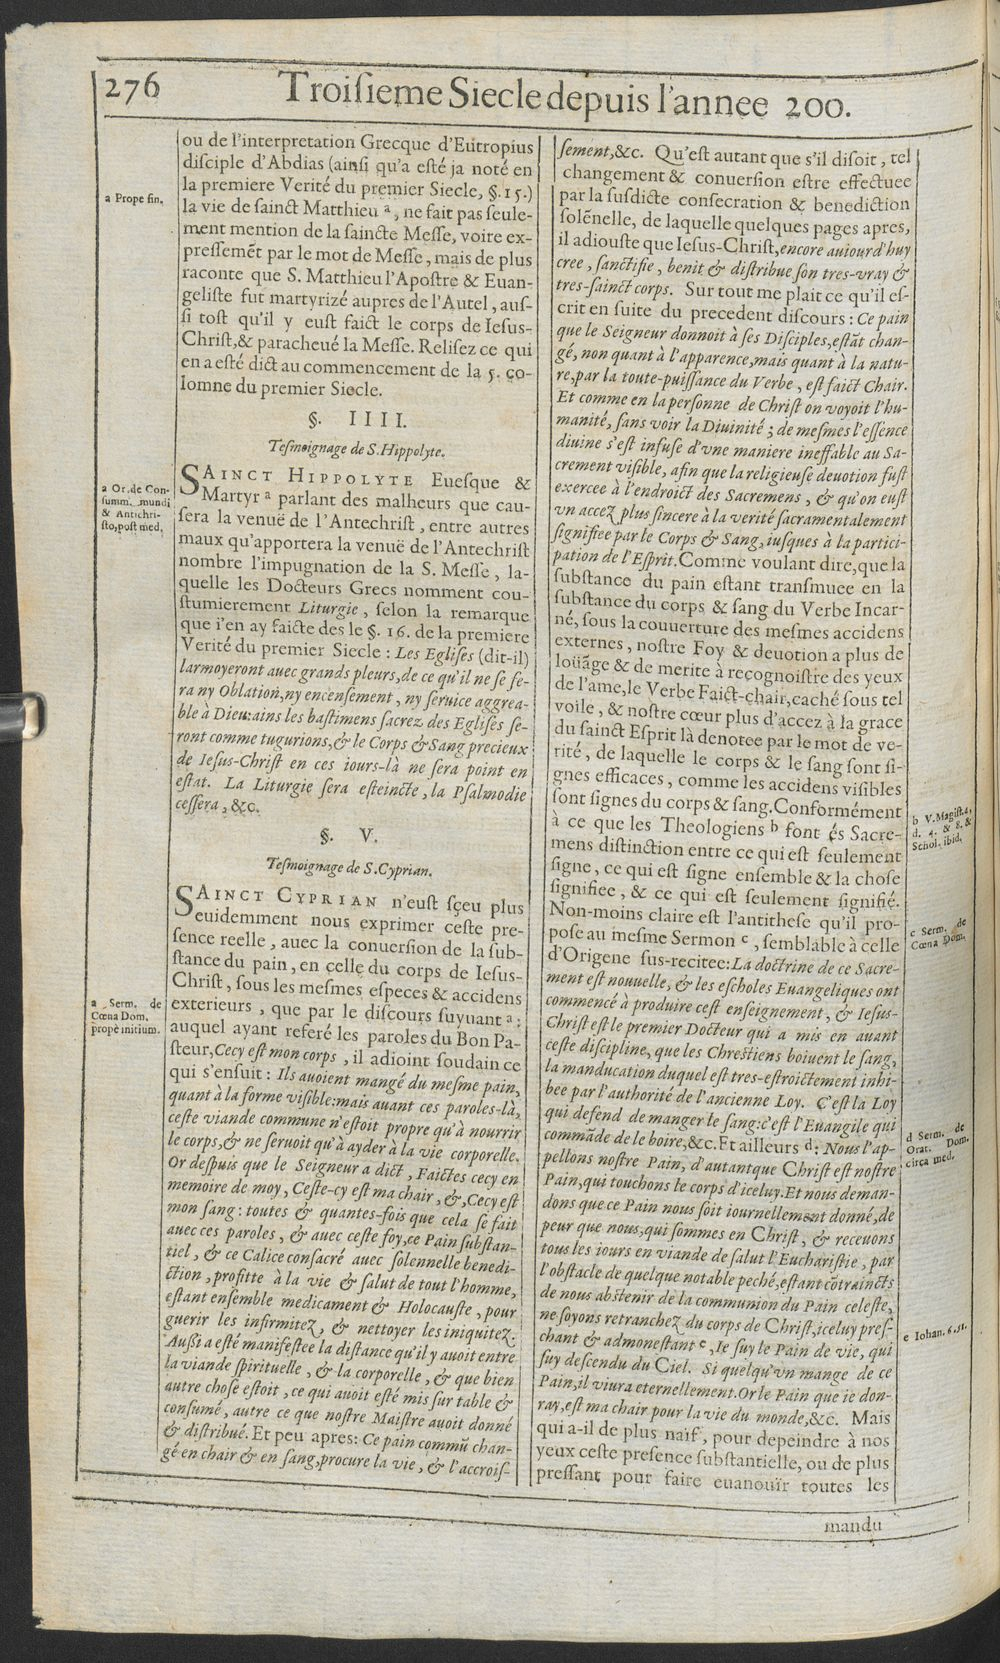 276
Troisieme Siecle depuis l'annee 200.
ou de l'interpretation Grecque d'Eutropius
disciple d'Abdias (ainsi qu'a esté ja noté en
la premiere Verité du premier Siecle, §.15.)
la vie de sainct Matthieu ª, ne fait pas seule-
ment mention de la saincte Messe, voire ex-
pressemẽt par le mot de Messe, mais de plus
raconte que S. Matthieu l'Apostre & Euan-
geliste fut martyrizé aupres de l'Autel, aus-
si tost qu'il y eust faict le corps de Iesus-
Christ, & paracheué la Messe. Relisez ce qui
en a esté dict au commencement de la 5. co-
lomne du premier Siecle.
a Prope fin.
§. IIII.
Tesmoignage de S. Hippolyte.
SAINCT HIPPOLYTE Euesque &
Martyr ª parlant des malheurs que cau-
sera la venuë de l'Antechrist, entre autres
maux qu'apportera la venuë de l'Antechrist
nombre l'impugnation de la S. Messe, la-
quelle les Docteurs Grecs nomment cou-
stumierement Liturgie, selon la remarque
que i'en ay faicte des le §. 16. de la premiere
Verité du premier Siecle: Les Eglises (dit-il)
larmoyeront auec grands pleurs, de ce qu'il ne se fe-
ra ny Oblation, ny encensement, ny seruice aggrea-
ble à Dieu: ains les bastimens sacrez des Eglises se-
ront comme tugurions, & le Corps & Sang precieux
de Iesus-Christ en ces iours-là ne sera point en
estat. La Liturgie sera esteincte, la Psalmodie
cessera, &c.
a Or. de Con-
summ. mundi
& Antichri-
sto, post med.
§. V.
Tesmoignage de S. Cyprian.
SAINCT CYPRIAN n'eust sçeu plus
euidemment nous exprimer ceste pre-
sence reelle, auec la conuersion de la sub-
stance du pain, en celle du corps de Iesus-
Christ, sous les mesmes especes & accidens
exterieurs, que par le discours suyuant ª:
auquel ayant referé les paroles du Bon Pa-
steur, Cecy est mon corps, il adioint soudain ce
qui s'ensuit: Ils auoient mangé du mesme pain,
quant à la forme visible: mais auant ces paroles-là,
ceste viande commune n'estoit propre qu'à nourrir
le corps, & ne seruoit qu'à ayder à la vie corporelle.
Or despuis que le Seigneur a dict, Faictes cecy en
memoire de moy, Ceste-cy est ma chair, &, Cecy est
mon sang: toutes & quantes-fois que cela se fait
auec ces paroles, & auec ceste foy, ce Pain substan-
tiel, & ce Calice consacré auec solennelle benedi-
ction, profitte à la vie & salut de tout l'homme,
estant ensemble medicament & Holocauste, pour
guerir les infirmitez, & nettoyer les iniquitez.
Aussi a esté manifestee la distance qu'il y auoit entre
la viande spirituelle, & la corporelle, & que bien
autre chose estoit, ce qui auoit esté mis sur table &
consumé, autre ce que nostre Maistre auoit donné
& distribué. Et peu apres: Ce pain commũ chan-
gé en chair & en sang, procure la vie, & l'accrois-
a Serm. de
Cœna Dom.
propè initium.
sement, &c. Qu'est autant que s'il disoit, tel
changement & conuersion estre effectuee
par la susdicte consecration & benediction
solẽnelle, de laquelle quelques pages apres,
il adiouste que Iesus-Christ, encore auiourd'huy
cree, sanctifie, benit & distribue son tres-vray &
tres-sainct corps. Sur tout me plait ce qu'il es-
crit en suite du precedent discours: Ce pain
que le Seigneur donnoit à ses Disciples, estãt chan-
gé, non quant à l'apparence, mais quant à la natu-
re, par la toute-puissance du Verbe, est faict Chair.
Et comme en la personne de Christ on voyoit l'hu-
manité, sans voir la Diuinité; de mesmes l'essence
diuine s'est infuse d'vne maniere ineffable au Sa-
crement visible, afin que la religieuse deuotion fust
exercee à l'endroict des Sacremens, & qu'on eust
vn accez plus sincere à la verité sacramentalement
signifiee par le Corps & Sang, iusques à la partici-
pation de l'Esprit. Comme voulant dire, que la
substance du pain estant transmuee en la
substance du corps & sang du Verbe Incar-
né, sous la couuerture des mesmes accidens
externes, nostre Foy & deuotion a plus de
loüãge & de merite à recognoistre des yeux
de l'ame, le Verbe Faict-chair, caché sous tel
voile, & nostre cœur plus d'accez à la grace
du sainct Esprit là denotee par le mot de ve-
rité, de laquelle le corps & le sang sont si-
gnes efficaces, comme les accidens visibles
sont signes du corps & sang. Conformément
à ce que les Theologiens ᵇ font és Sacre-
mens distinction entre ce qui est seulement
signe, ce qui est signe ensemble & la chose
signifiee, & ce qui est seulement signifié.
Non-moins claire est l'antithese qu'il pro-
pose au mesme Sermon ᶜ, semblable à celle
d'Origene sus-recitee: La doctrine de ce Sacre-
ment est nouuelle, & les escholes Euangeliques ont
commencé à produire cest enseignement, & Iesus-
Christ est le premier Docteur qui a mis en auant
ceste discipline, que les Chrestiens boiuent le sang,
la manducation duquel est tres-estroictement inhi-
bee par l'authorité de l'ancienne Loy. C'est la Loy
qui defend de manger le sang: c'est l'Euangile qui
commãde de le boire, &c. Et ailleurs ᵈ: Nous l'ap-
pellons nostre Pain, d'autant que Christ est nostre
Pain, qui touchons le corps d'iceluy. Et nous deman-
dons que ce Pain nous soit iournellement donné, de
peur que nous, qui sommes en Christ, & receuons
tous les iours en viande de salut l'Eucharistie, par
l'obstacle de quelque notable peché, estant cõtraincts
de nous abstenir de la communion du Pain celeste,
ne soyons retranchez du corps de Christ, iceluy pres-
chant & admonestant ᵉ, Ie suy le Pain de vie, qui
suy descendu du Ciel. Si quelqu'vn mange de ce
Pain, il viura eternellement. Or le Pain que ie don-
ray, est ma chair pour la vie du monde, &c. Mais
qui a-il de plus naïf, pour depeindre à nos
yeux ceste presence substantielle, ou de plus
pressant pour faire euanouïr toutes les
b V. Magist. 4.
d. 4. & 8. &
Schol. ibid.
c Serm. de
Cœna Dom.
d Serm. de
Orat. Dom.
circa med.
e Iohan. 6. 51.
mandu